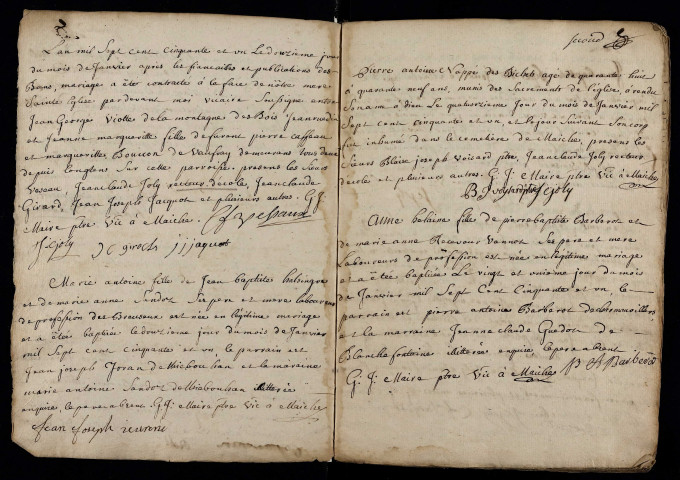 L'an mil Sept cent Cinquante et un Le douzieme jour
du mois de Janvier après les fiancailles et publications des
Bans, mariage a êté contracté à la face de nôtre mere
Sainte Eglise pardevant moi vicaire Soussigné entre
Jean George Viotte de la montagne des Bois
et Jeanne margueritte fille de furent pierre
et margueritte de Vaufrey demeurans tous deux
depuis longtems Sur cette parroche, presens les Sieurs
Jean Claude Joly recteur decole, jeanclaude
Girard Jean Joseph Jacquot et plusieurs autres. G: J:
Maire ptre Vic à Maiche
J C Joly J C girard jjjaquot
Marie antoine fille de Jean baptiste
et de marie anne Sandoz Ses pere et mere laboureurs
de profession des Breuseux est née en legitime mariage
et a êtés baptisée Le douzieme jour du mois de Janvier
mil Sept cent cinquante et un, le parrain est
jean joseph de et la maraine
marie antoine Sandoz de illiterée
enquise le pere absent. G: J: Maire ptre Vic à Maiche
Jean Joseph
second
Pierre antoine des Bichets agé de quarante huit
à quarante neuf ans, munis des Sacrements de l'eglise, à rendu
Son ame à dieu Le quatorzieme Jour du mois de Janvier mil
Sept cent cinquante et un, et Le jour Suivant Son corp
fut inhumé dans le cemetiere de Maiche, presens les
Sieurs Blaise joseph Voisard ptre, Jean Claude Joly recteur
decole et plusieurs autres. G: J: Maire ptre Vic à Maiche
B J Voisard ptre J C joly
Anne helaine fille de pierre baptiste Barberot et
de marie anne Vannot Ses pere et mere
Laboureurs de profession est née en legitime mariage
et a êtée baptisée Le vingt et unieme jour du mois
de Janvier mil Sept Cent Cinquante et un, le
parrain est pierre antoine Barberot
et la marraine Jeanne claude Guedot de
Blanche fontaine illiterée enquise le pere absent
G: J: Maire ptre Vic à Maiche P A Barberot